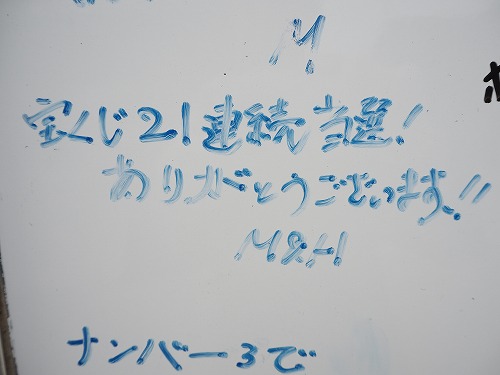 M
宝くじ21連続当選!
ありがとうございます!!
M&H
ナンバー3で